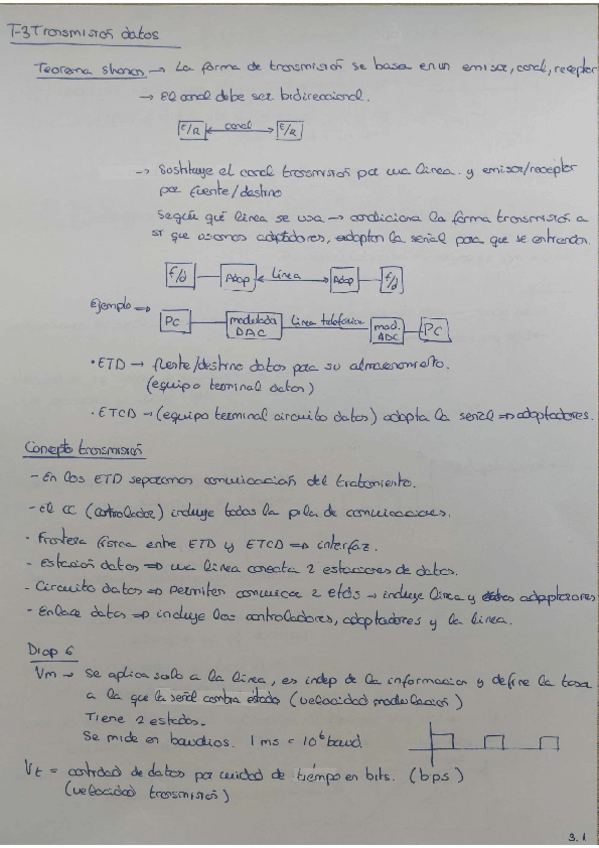 T-3 Transmisión datos
Teorema Shanon → La forma de transmisión se basa en un emisor, canal, receptor
→ El canal debe ser bidireccional.
E/R canal E/R
→ Sustituye el canal transmisión por una línea y emisor/receptor
por fuente/destino
Según qué línea se usa → condiciona la forma transmisión a
sí que usamos adaptadores, adaptan la señal para que se entiendan.
f/d Adap línea Adap f/d
Ejemplo ⇒
PC modulada DAC línea telefónica mod. ADC PC
· ETD → fuente/destino datos para su almacenamiento.
(equipo terminal datos)
· ETCD → (equipo terminal circuito datos) adapta la señal ⇒ adaptadores.
Concepto transmisión
- En los ETD separamos comunicación del tratamiento.
- El CC (controlador) incluye todas la pila de comunicaciones.
· Frontera física entre ETD y ETCD ⇒ interfaz.
- Estación datos ⇒ una línea conecta 2 estaciones de datos.
- Circuito datos ⇒ permiten comunicar 2 etds → incluye línea y adaptadores
- Enlace datos ⇒ incluye los controladores, adaptadores y la línea.
Diap 6
Vm → se aplica solo a la línea, es indep de la informacion y define la tasa
a la que la señal cambia estado (velocidad modulación)
Tiene 2 estados.
Se mide en baudios. 1 ms = 10⁶ baud.
Vt = cantidad de datos por unidad de tiempo en bits. (bps)
(velocidad transmisión)
3.1